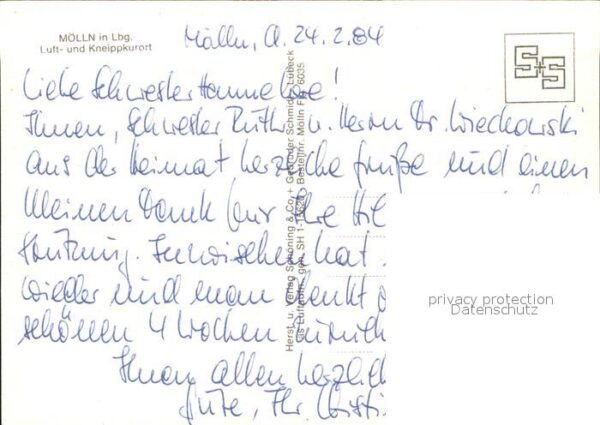 MÖLLN in Lbg.
Luft- und Kneippkurort
Mölln, d. 24. 2. 84
Liebe Schwester Hannelore!
Ihnen, Schwester Ruth u. Herrn Dr. Wiechowski
aus der Heimat herzliche Grüße und einen
kleinen Dank für Ihre Hil
Inzwischen hat
wieder und man denkt
schönen 4 Wochen zurück
Ihnen allen herzlich
Gute, Ihr Christi
Herst. u. Verlag Schöning & Co. + Gebrüder Schmidt, Lübeck
SH 1-15620 Bestellnr. Mölln 6035
S+S
privacy protection
Datenschutz